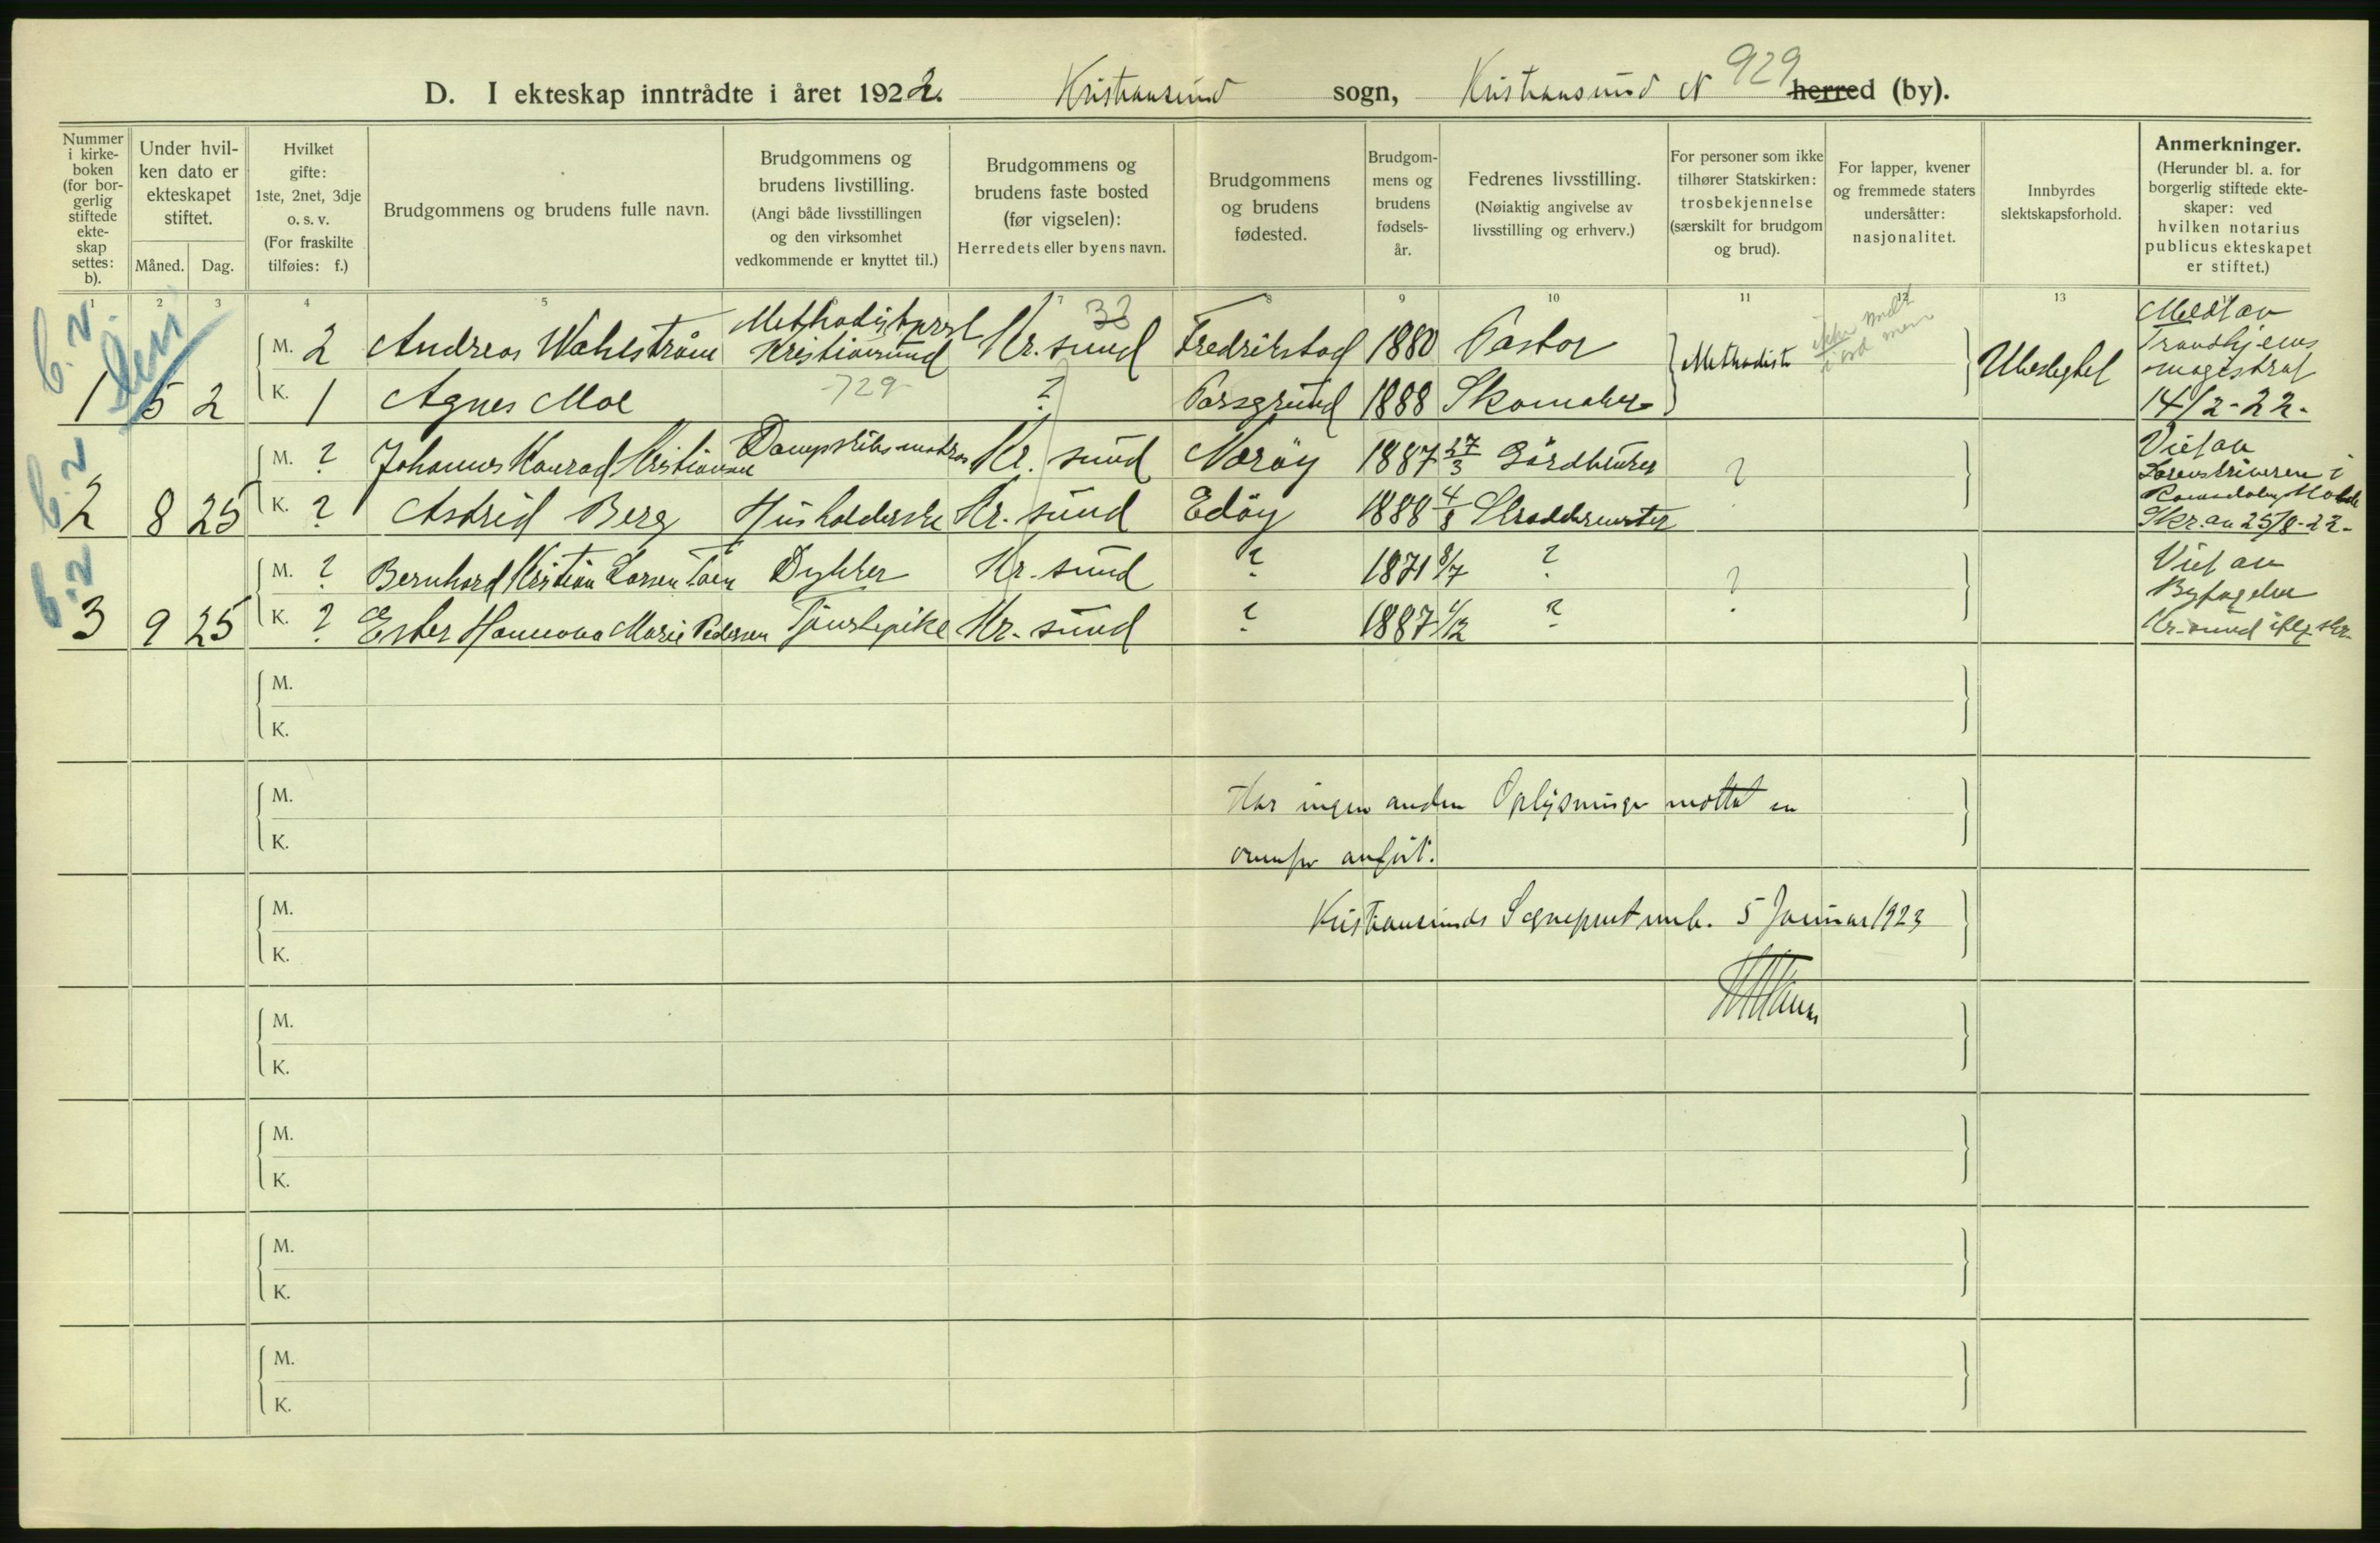 D. I ekteskap inntrådte i året 1922. Kristiansund sogn, Kristiansund N 929 herred (by).
Nummer i kirke- boken (for bor- gerlig stiftede ekte- skap settes: b).
Under hvil- ken dato er ekteskapet stiftet.
Måned. Dag.
Hvilket gifte: 1ste, 2net, 3dje o. s. v. (For fraskilte tilføies: f.)
Brudgommens og brudens fulle navn.
Brudgommens og brudens livstilling. (Angi både livsstillingen og den virksomhet vedkommende er knyttet til.)
Brudgommens og brudens faste bosted (før vigselen): Herredets eller byens navn.
Brudgommens og brudens fødested.
Brudgom- mens og brudens fødsels- år.
Fedrenes livsstilling. (Nøiaktig angivelse av livsstilling og erhverv.)
For personer som ikke tilhører Statskirken: trosbekjennelse (særskilt for brudgom og brud).
For lapper, kvener og fremmede staters undersåtter: nasjonalitet.
Innbyrdes slektskapsforhold.
Anmerkninger. (Herunder bl. a. for borgerlig stiftede ekte- skaper: ved hvilken notarius publicus ekteskapet er stiftet.)
1 2 3 4 5 7 8 9 10 11 12 13
b. 2.
M. 2 Andreas Wahlstrøm Methodistprest Kristiansund Kr. sund 33 Fredrikstad 1880 Pastor
1 5 2 K. 1 Agnes Moe 729 ? Porsgrund 1888 Skomaker
Methodist
Ubeslegtet
Meldt av
Trondhjems
magistrat
14/2-22.
b. 2
M. ? Johannes Konrad Kristiansen Dampskibsmatros Kr. sund Nærøy 1887 27/3 Gårdbruker
2 8 25 K. ? Astrid Berg Husholderske Kr. sund Edöy 1888 4/8 Skreddermester
?
Viet av
Sorenskriveren i
Romsdalen Molde
Skr. av 25/8-22-
b. 2
M. ? Bernhard Kristian Larsen Dykker Kr. sund ? 1871 8/7 ?
3 9 25 K. ? Ester Hannona Marie Pedersen Tjenestepike Kr. sund ? 1887 1/12 ?
?
Viet av
Byfogden
Kr. sund iflg skr.
M.
K.
M.
K.
Har ingen anden Oplysninger mottat en
ovenfor anført.
M.
K.
Kristiansunds Sogneprestemb. 5 Januar 1923
M.
K.
M.
K.
M.
K.
M.
K.